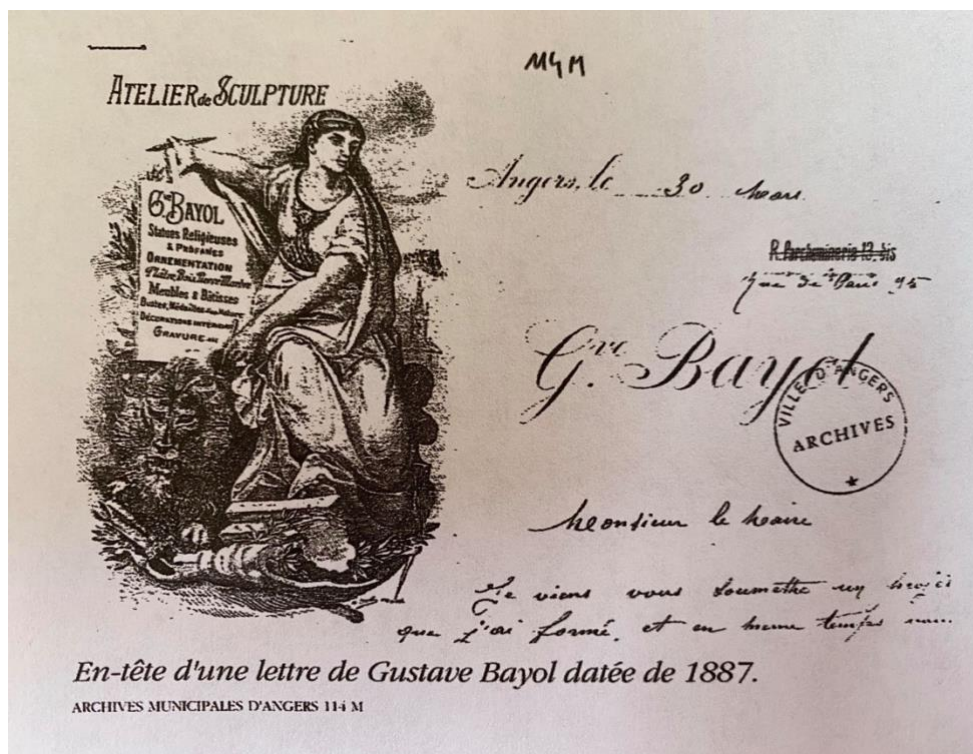 114 M
ATELIER de SCULPTURE
G. BAYOL
Statues Religieuses
& PROFANES
ORNEMENTATION
Plâtre, Bois, Pierre, Marbre
Meubles & Bâtisses
Bustes, Médailles
DÉCORATIONS INTÉRIEURES
GRAVURE
Angers, le 30 Mars
R. Parcheminerie 13, bis
rue de Paris 95
Gve. Bayol
VILLE D'ANGERS
ARCHIVES
Monsieur le Maire
Je viens vous soumettre un projet
que j'ai formé, et en meme temps
En-tête d'une lettre de Gustave Bayol datée de 1887.
ARCHIVES MUNICIPALES D'ANGERS 114 M